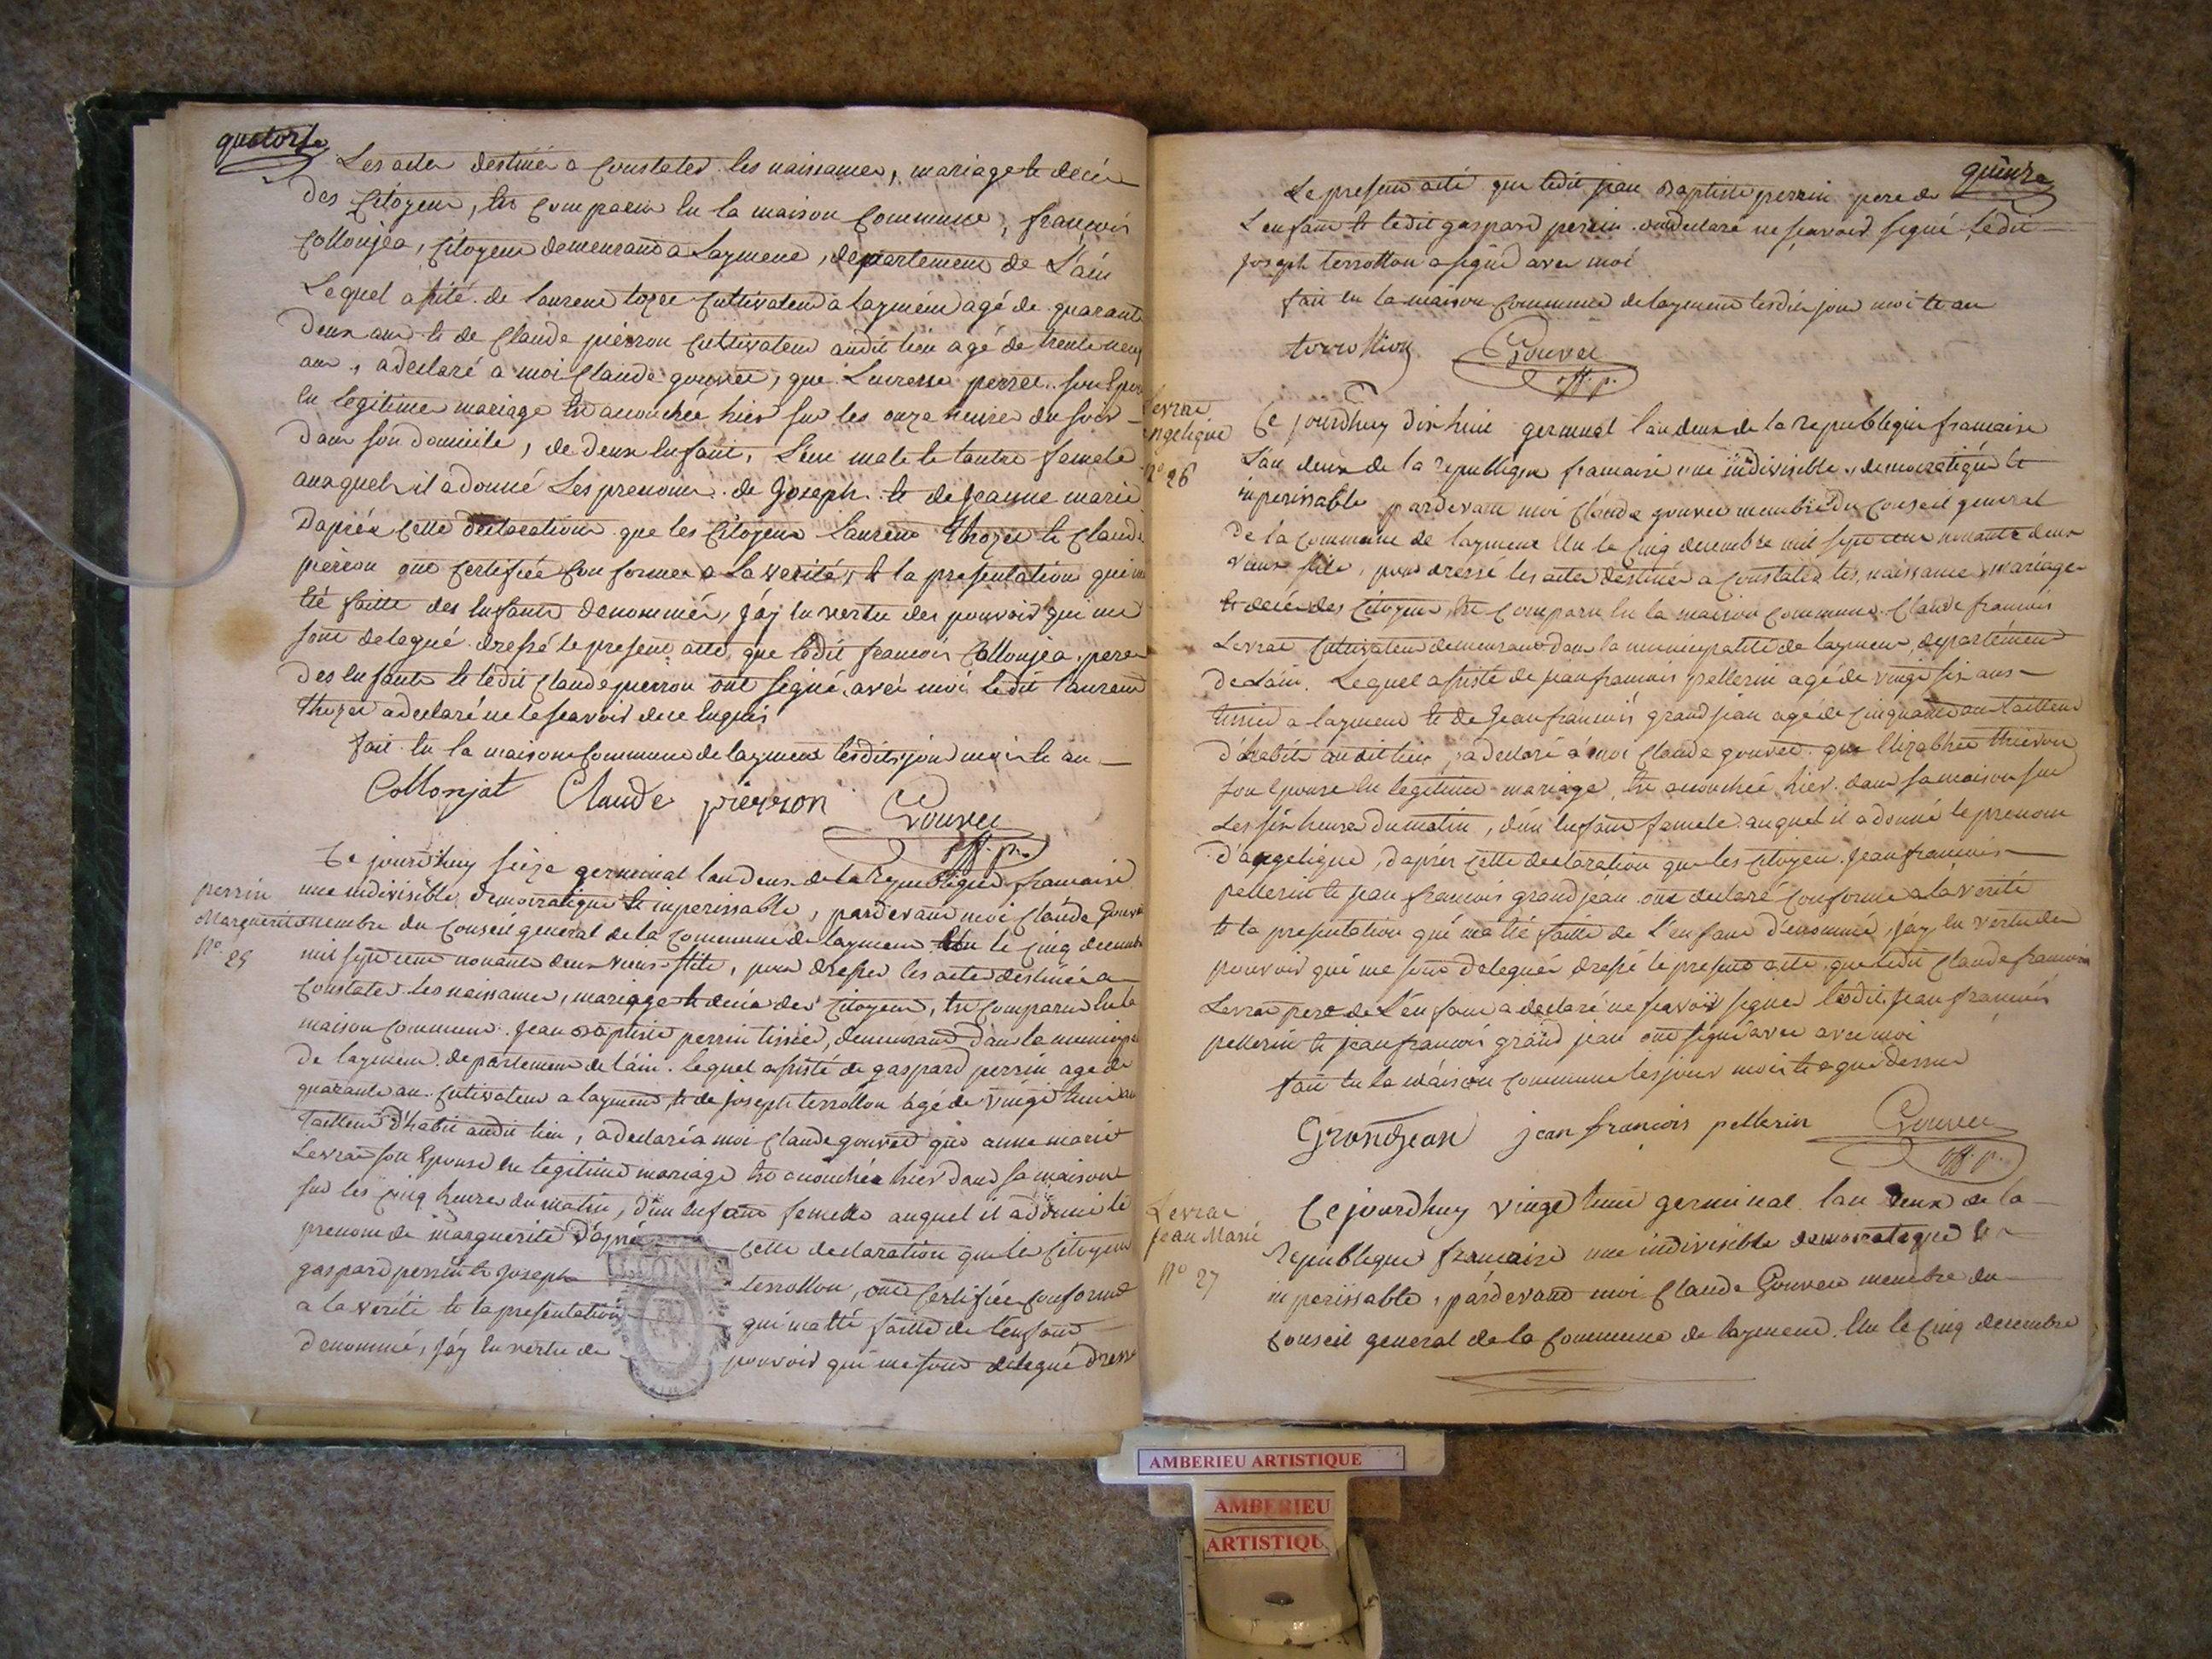 quatorze
Les actes destinés a Constater les naissances, mariage et décés
des Citoyens, est comparu en la maison commune, françois
Collonjea, Citoyen demeurand a Laymend, département de L'ain
Lequel assité de laurend tozee Cultivateur a laymend agé de quarante
deux ans et de Claude pierron Cultivateur audit lieu agé de trente neuf
ans, a declaré a moi Claude gouvee, que Lucresse perret son Epouse
en legitime mariage est accouchée hier sur les onze heures du soir
dans son domicile, de deux Enfant, L'un male et l'autre femele
auxquels il a donné Les prenoms de Joseph et de Jeanne marie
D'aprés cette declaration que les Citoyens laurend thozee et Claude
pierron ont certifiée conformes a la verité, et la presentation qui m'a
été faitte des Enfants denommés, j'áy en vertu des pouvoir qui me
sont delegué dressé le present acte, que ledit francois Collonjea pere
des Enfants et ledit Claude pierron ont signé avec moi ledit laurend
thozee a declaré ne le scavoir de ce Enquis
fait en la maison commune de laymend lesdits jour mois et an
Collonjat Claude pierron Gouvee
off. p.
Ce jourd'huy seize germinal l'an deux de la République francaise
perrin
une indivisible, démocratique et imperissable, pardevand moi Claude Gouvee
Marguerite
membre du Conseil general de la Commune de laymend Elu le Cinq decembre
N° 25
mil sept cent nonante deux vieux stile, pour dresser les actes destinés a
Constater les naissances, mariage et décés des Citoyens, est comparu en la
maison commune Jean Baptiste perrin tissier, demeurand dans la municipa
de laymend departement de l'ain. lequel assisté de gaspard perrin agé de
quarante an Cultivateur a laymend et de joseph terrollon agé de vingt huit an
Tailleur d'habit audit lieu, a declaré a moi Claude gouvee que anne marie
Levrat son Epouse en legitime mariage est accouchée hier dans sa maison
sur les cinq heures du matin, d'un enfant femelle auquel il a donné le
prenom de marguerite D'aprés cette declaration que les Citoyens
gaspard perrin et Joseph terrollon, ont certifiée conforme
a la verité et la presentation qui m'a été faitte de l'enfant
denommé, j'áy en vertu de pouvoir qui me sont delegué dressé
quinze
Le present acte que ledit jean Baptiste perrin pere de
L'enfant et ledit gaspard perrin ont declaré ne scavoir signé ledit
Joseph terrollon a signé avec moi
fait en la maison commune de laymend lesdits jour moi et an
terrollion Gouvee
off. p.
Levrat
Angelique
N° 26
Ce jourdhuy dix huit germinal l'an deux de la republique francaise
L'an deux de la republique francaise une indivisible, democratique et
imperissable pardevant moi Claude gouvee membre du Conseil general
De la Commune de laymend Elu le Cinq decembre mil sept cent nonante deux
vieux stile, pour dressé les actes destinés a Constater les naissances, mariage
et décés des Citoyens, est comparu en la maison commune Claude francois
Levrat Cultivateur demeurand dans la municipalité de laymend, departement
de L'ain. Lequel assisté de jean francois pellerin agé de vingt six ans
tissier a laymend et de Jean francois grand jean agé de cinquante ans tailleur
d'habits audit lieu, a declaré a moi Claude gouvee que Elizabhet thievon
son Epouse en legitime mariage, est accouchée hier dans sa maison sur
Les six heures du matin, d'un Enfant femele auquel il a donné le prenom
d'angelique, d'aprés cette declaration que les Citoyen Jean francois
pellerin et jean francois grand jean ont declaré conforme a la verité
et la presentation qui m'a été faitte de L'enfant denommé, j'áy en vertu de
pouvoir qui me sont delegués dressé le present acte, que ledit Claude francois
Levrat pere de L'enfant a declaré ne scavoir signer lesdit Jean francois
pellerin et jean francois grand jean ont signé avec avec moi
fait en la maison commune les jour mois et a que dessus
Grandjean jean françois pellerin Gouvee
off. p.
Levrat
Jean Marie
N° 27
Ce jourdhuy vingt huit germinal l'an deux de la
republique francaise une indivisible democratique et
imperissable, pardevand moi Claude Gouvee membre du
Conseil general de la Commune de laymend Elu le Cinq decembre
AMBERIEU ARTISTIQUE
AMBERIEU
ARTISTIQU